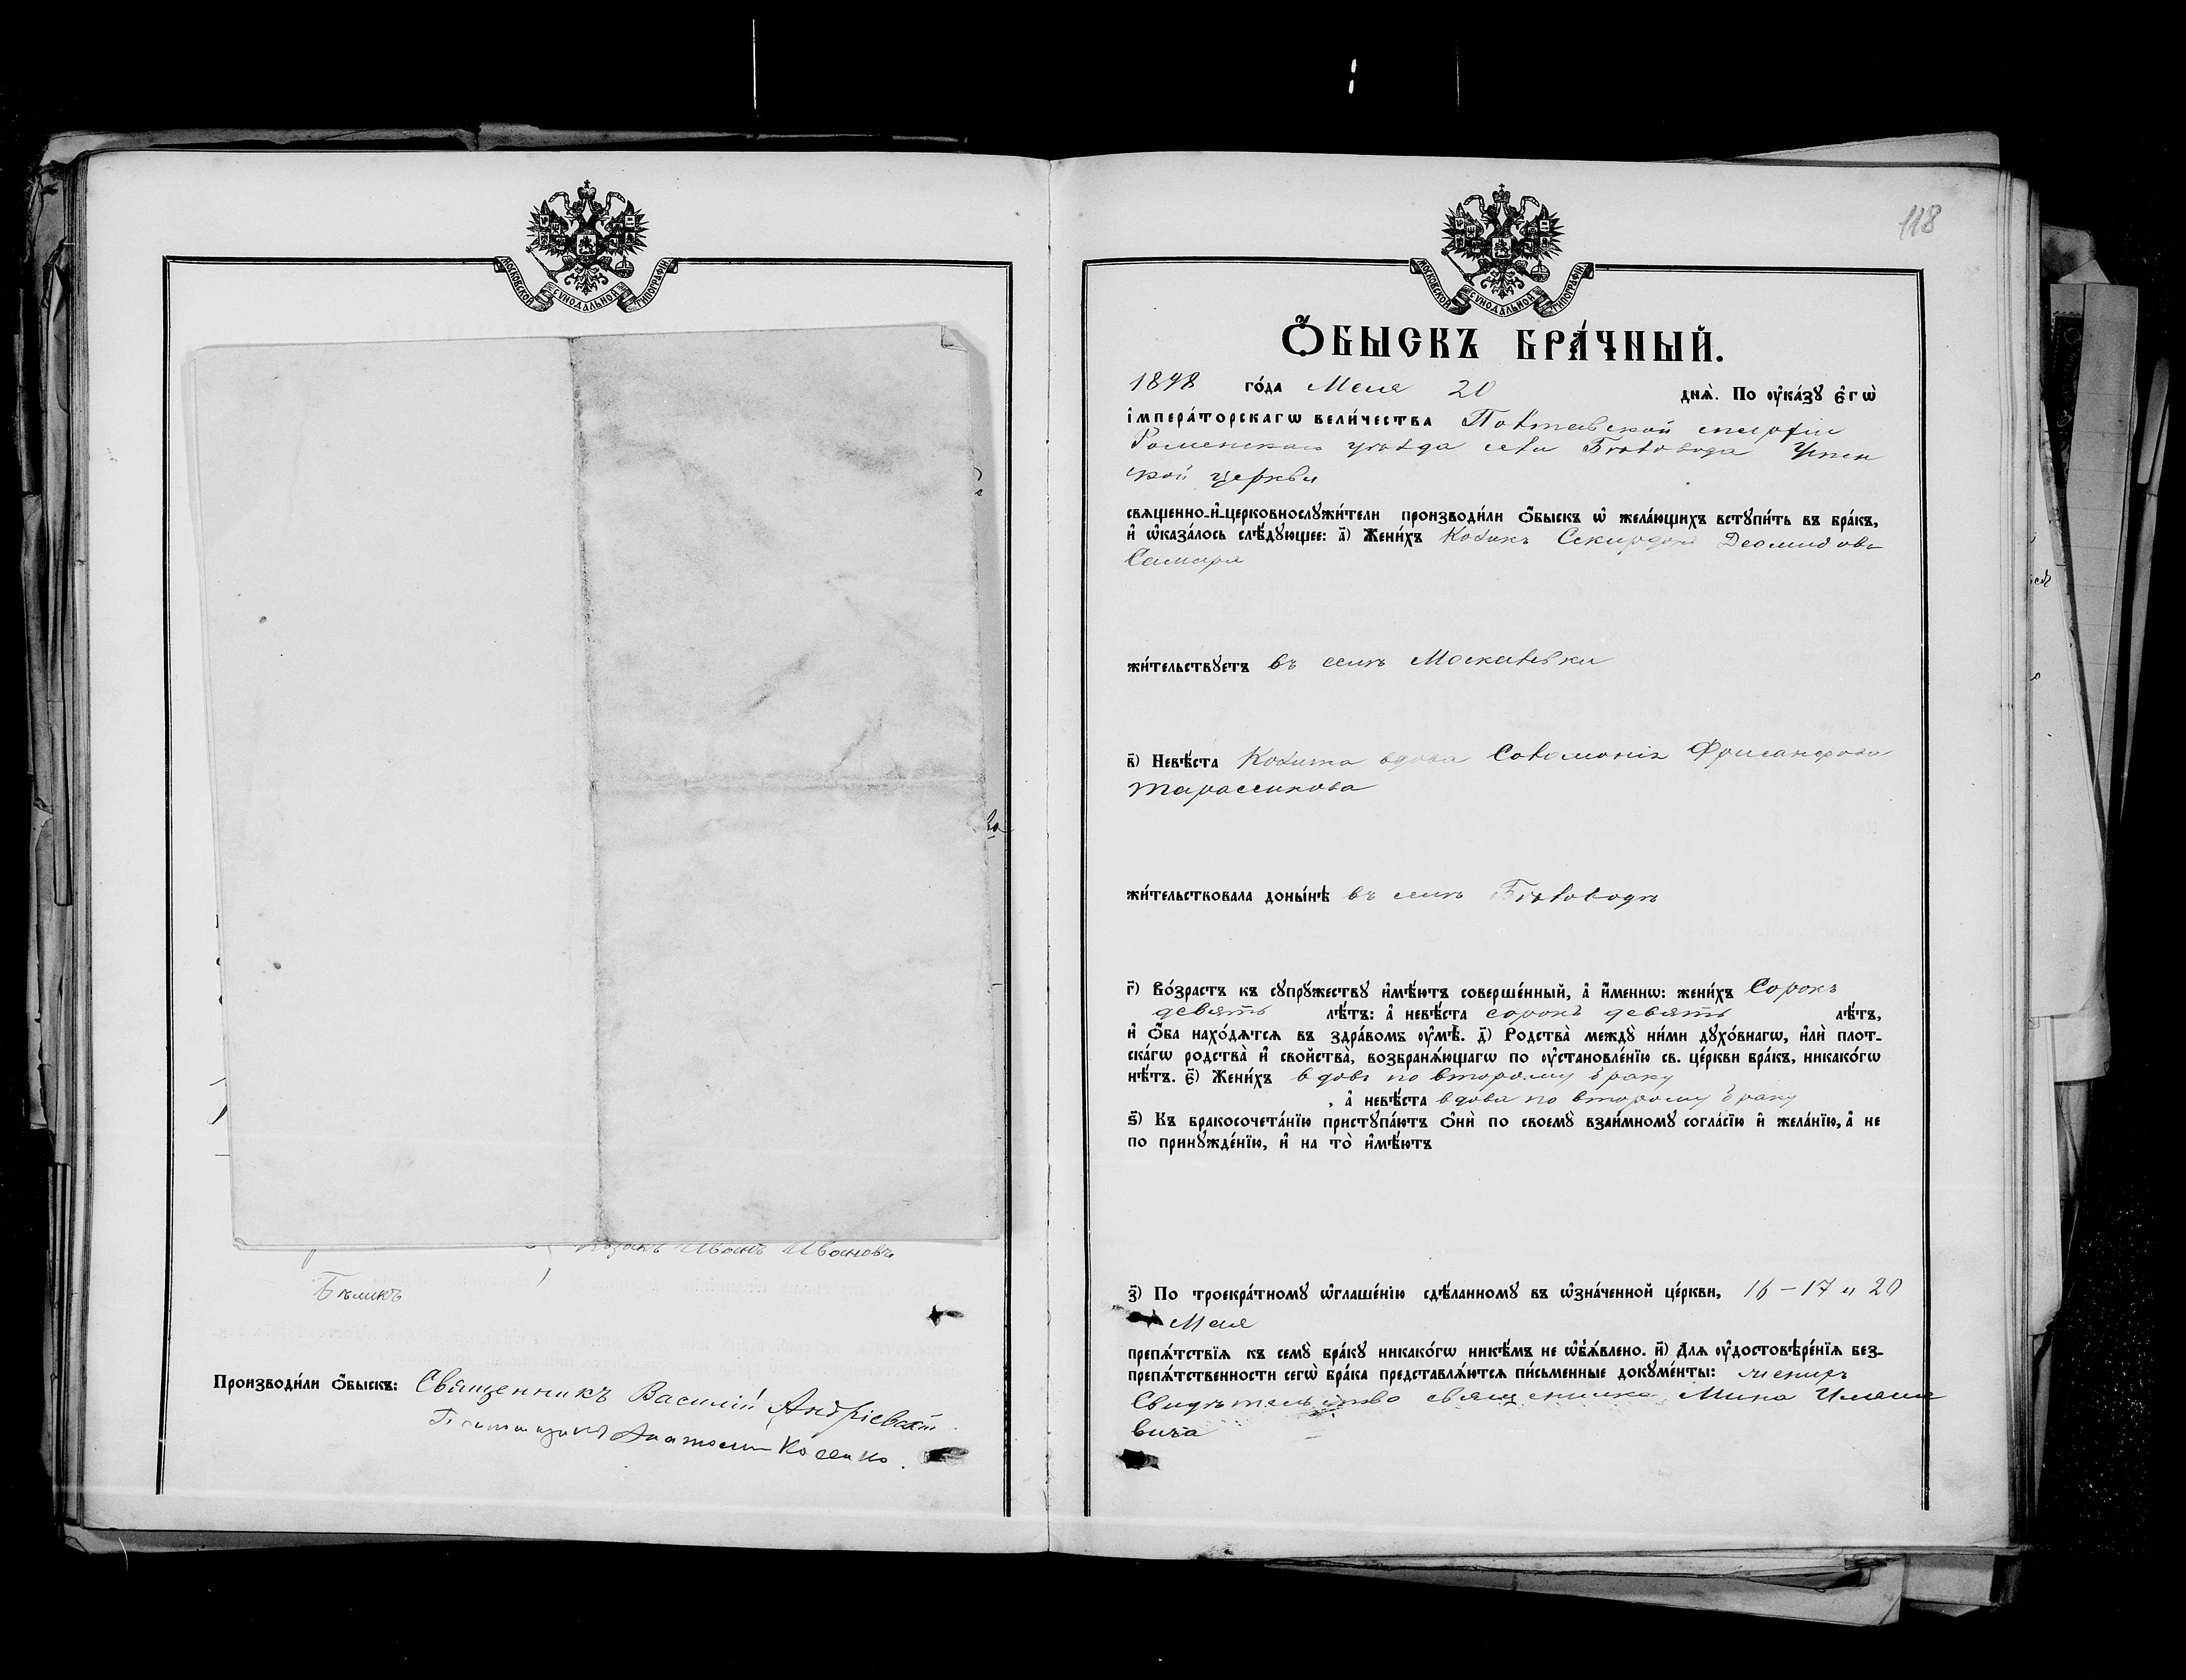 МОСКОВСКОЙ СѴНОДАЛЬНОЙ ТИПОГРАФІИ
Козакъ Иванъ Ивановъ
Бѣликъ
Производи́ли ѻ҆́быскъ: Священникъ Василій Андріевскій
Косенко.
118
МОСКОВСКОЙ СѴНОДАЛЬНОЙ ТИПОГРАФІИ
Ѻ҆́БЫСКЪ БРА́ЧНЫЙ.
1898 го́да Мая 20 днѧ̀. По ᲂу҆ка́зꙋ є҆гѡ̀
і҆мпера́торскагѡ вели́чества Полтавской епархіи
Роменскаго уѣзда села Бѣловода Успен
ской церкви
свѧщенно-и҆-церковнослꙋжи́тели производи́ли ѻ҆́быскъ ѡ҆ жела́ющихъ встꙋпи́ть въ бра́къ,
и҆ ѡ҆каза́лось слѣ́дꙋющее: а҃) Жени́хъ Козакъ Деомидовъ
Самара
жи́тельствꙋетъ въ селѣ Москалевки
в҃) Невѣ́ста Козачка вдова Соломонія
Тарасенкова
жи́тельствовала доны́нѣ въ селѣ Бѣловодѣ
г҃) Во́зрастъ къ сꙋпрꙋ́жествꙋ и҆мѣ́ютъ соверше́нный, а҆ и҆́менно: жени́хъ Сорокъ
девять лѣ́тъ: а҆ невѣ́ста сорокъ девять лѣ́тъ,
и҆ ѻ҆́ба нахо́дѧтсѧ въ здра́вомъ ᲂу҆мѣ̀. д҃) Родства̀ междꙋ̀ ни́ми дꙋхо́внагѡ, и҆лѝ плот-
ска́гѡ родства̀ и҆ свойства̀, возбранѧ́ющагѡ по ᲂу҆становле́нїю св. це́ркви бра́къ, никако́гѡ
нѣ́тъ. є҃) Жени́хъ вдовъ по второму браку
, а҆ невѣ́ста вдова по второму браку
ѕ҃) Къ бракосочета́нїю пристꙋпа́ютъ ѻ҆нѝ по своемꙋ̀ взаи́мномꙋ согла́сїю и҆ жела́нїю, а҆ не
по принꙋжде́нїю, и҆ на то̀ и҆мѣ́ютъ
з҃) По троекра́тномꙋ ѡ҆глаше́нїю сдѣ́ланномꙋ въ ѡ҆зна́ченной це́ркви, 16 – 17 и 20
Мая
препѧ́тствїѧ къ семꙋ̀ бра́кꙋ никако́гѡ никѣ́мъ не ѡ҆б̾ѧ́влено. и҃) Длѧ ᲂу҆достовѣре́нїѧ без-
препѧ́тственности сегѡ̀ бра́ка представлѧ́ютсѧ пи́сьменные докꙋме́нты:
Свидѣтельство священника Мина Илляше
вича